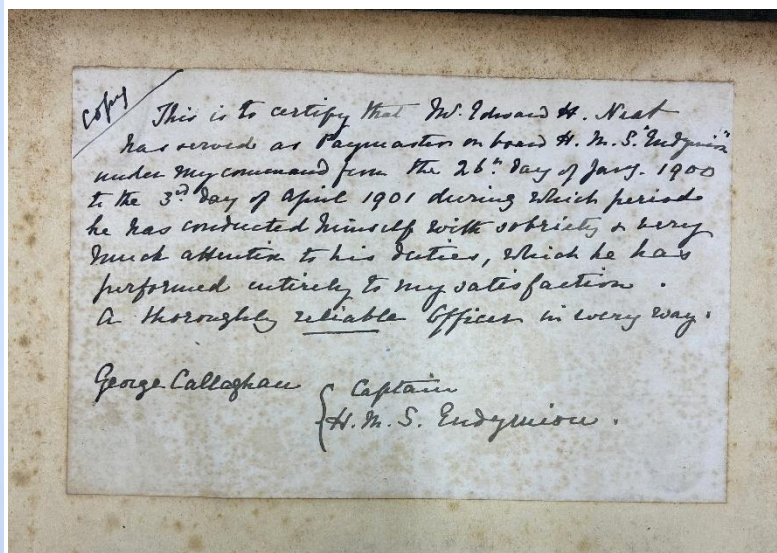 copy
This is to certify that Mr. Edward H. Neat
has served as Paymaster on board H. M. S. "Endymion"
under my command from the 26th. day of Jany. 1900
to the 3rd day of April 1901 during which period
he has conducted himself with sobriety & very
much attention to his duties, which he has
performed entirely to my satisfaction.
A thoroughly reliable Officer in every way.
George Callaghan { Captain
H. M. S. Endymion.